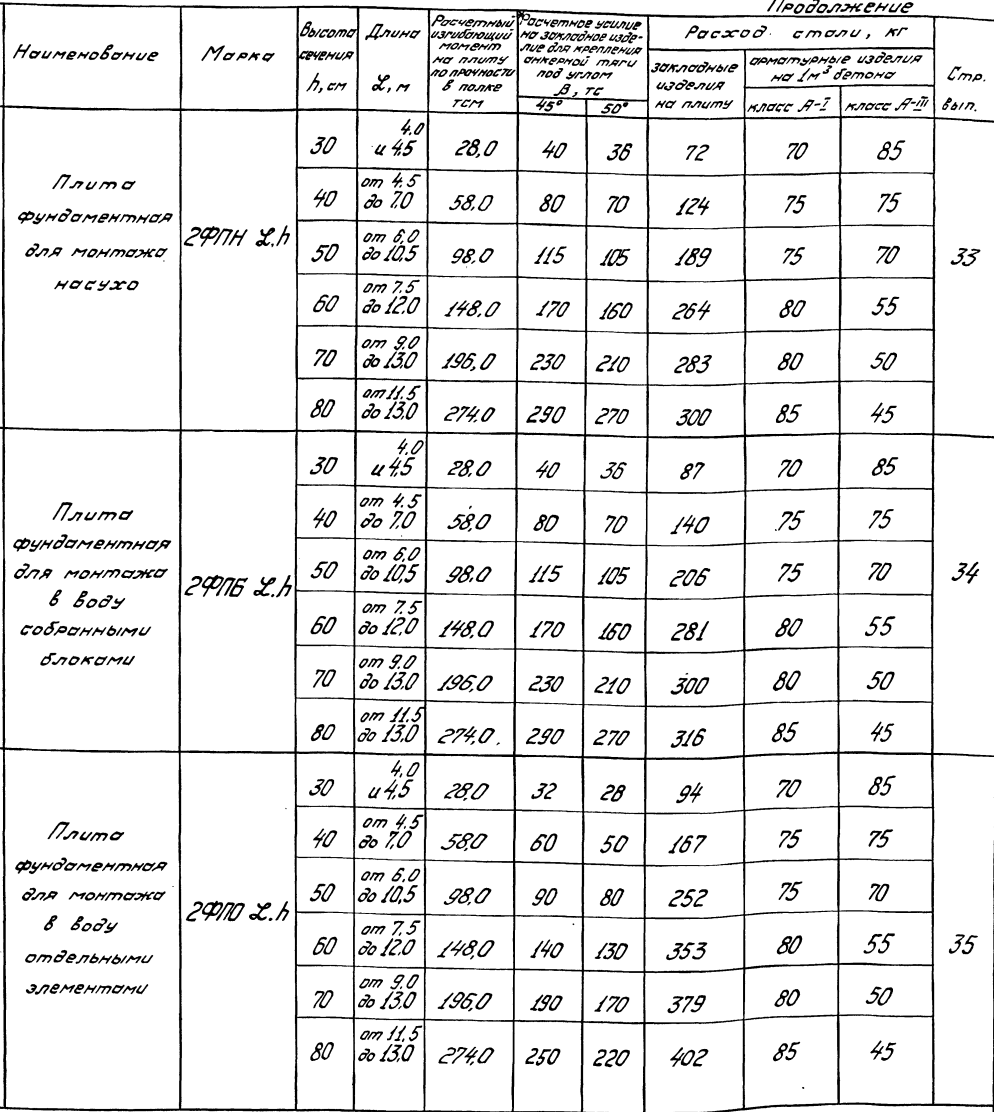 Продолжение
Наименование | Марка | Высота сечения h, см | Длина ℒ, м | Расчетный изгибающий момент на плиту по прочности в полке тсм | *Расчетное усилие на закладное изделие для крепления анкерной тяги под углом β, тс | Расход стали, кг | Стр. вып.
45° | 50° | закладные изделия на плиту | арматурные изделия на 1м³ бетона
класс А-I | класс А-III
Плита фундаментная для монтажа насухо | 2ФПН ℒ.h | 30 | 4.0 и 4.5 | 28,0 | 40 | 36 | 72 | 70 | 85 | 33
40 | от 4.5 до 7.0 | 58.0 | 80 | 70 | 124 | 75 | 75
50 | от 6.0 до 10.5 | 98.0 | 115 | 105 | 189 | 75 | 70
60 | от 7.5 до 12.0 | 148.0 | 170 | 160 | 264 | 80 | 55
70 | от 9.0 до 13.0 | 196,0 | 230 | 210 | 283 | 80 | 50
80 | от 11.5 до 13.0 | 274.0 | 290 | 270 | 300 | 85 | 45
Плита фундаментная для монтажа в воду собранными блоками | 2ФПБ ℒ.h | 30 | 4.0 и 4.5 | 28.0 | 40 | 36 | 87 | 70 | 85 | 34
40 | от 4.5 до 7.0 | 58,0 | 80 | 70 | 140 | 75 | 75
50 | от 6.0 до 10,5 | 98.0 | 115 | 105 | 206 | 75 | 70
60 | от 7.5 до 12.0 | 148,0 | 170 | 160 | 281 | 80 | 55
70 | от 9.0 до 13.0 | 196,0 | 230 | 210 | 300 | 80 | 50
80 | от 11.5 до 13.0 | 274,0. | 290 | 270 | 316 | 85 | 45
Плита фундаментная для монтажа в воду отдельными элементами | 2ФПО ℒ.h | 30 | 4,0 и 4,5 | 28,0 | 32 | 28 | 94 | 70 | 85 | 35
40 | от 4.5 до 7.0 | 58,0 | 60 | 50 | 167 | 75 | 75
50 | от 6.0 до 10,5 | 98.0 | 90 | 80 | 252 | 75 | 70
60 | от 7.5 до 12.0 | 148,0 | 140 | 130 | 353 | 80 | 55
70 | от 9.0 до 13.0 | 196,0 | 190 | 170 | 379 | 80 | 50
80 | от 11.5 до 13.0 | 274,0 | 250 | 220 | 402 | 85 | 45